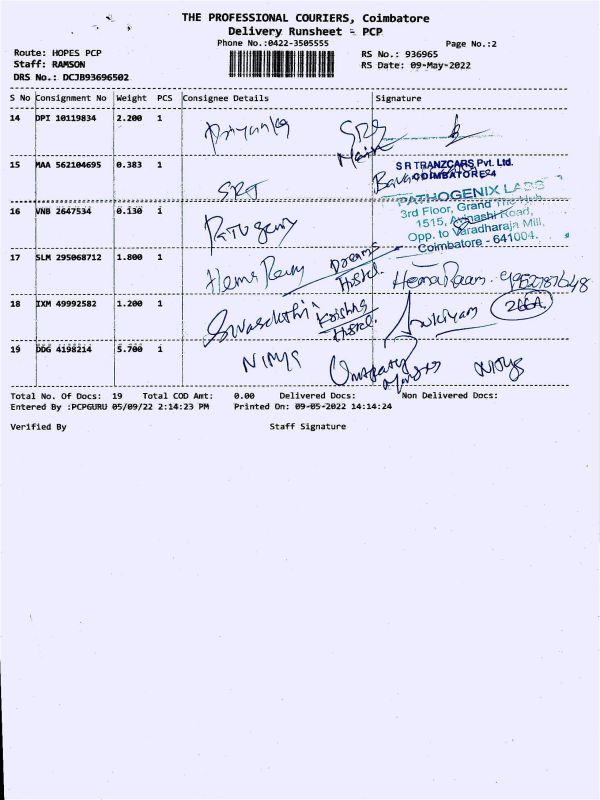 THE PROFESSIONAL COURIERS, Coimbatore
Delivery Runsheet - PCP
Phone No.:0422-3505555
Page No.:2
Route: HOPES PCP
RS No.: 936965
Staff: RAMSON
RS Date: 09-May-2022
DRS No.: DCJB93696502
S No Consignment No Weight PCS Consignee Details Signature
14 DPI 10119834 2.200 1 Priyanka
15 MAA 562104695 0.383 1 SRT
S R TRANZCARS Pvt. Ltd.
COIMBATORE-4
16 VNB 2647534 0.130 1
PATHOGENIX LABS
3rd Floor, Grand The Hub,
1515, Avinashi Road,
Opp. to Varadharaja Mill,
Coimbatore - 641004.
17 SLM 295068712 1.800 1 Dreams Hostel
18 IXM 49992582 1.200 1 Krishna Hostel. 266A
19 DDG 4198214 5.700 1
Total No. Of Docs: 19 Total COD Amt: 0.00 Delivered Docs: Non Delivered Docs:
Entered By :PCPGURU 05/09/22 2:14:23 PM Printed On: 09-05-2022 14:14:24
Verified By Staff Signature